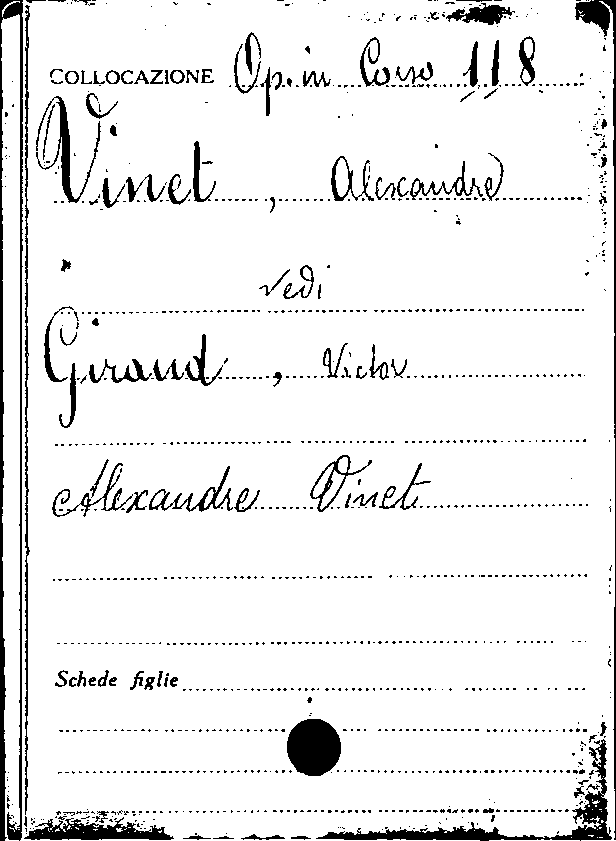 COLLOCAZIONE Op. in Corso 118
Vinet, Alexandre
vedi
Giraud, Victor
Alexandre Vinet
Schede figlie